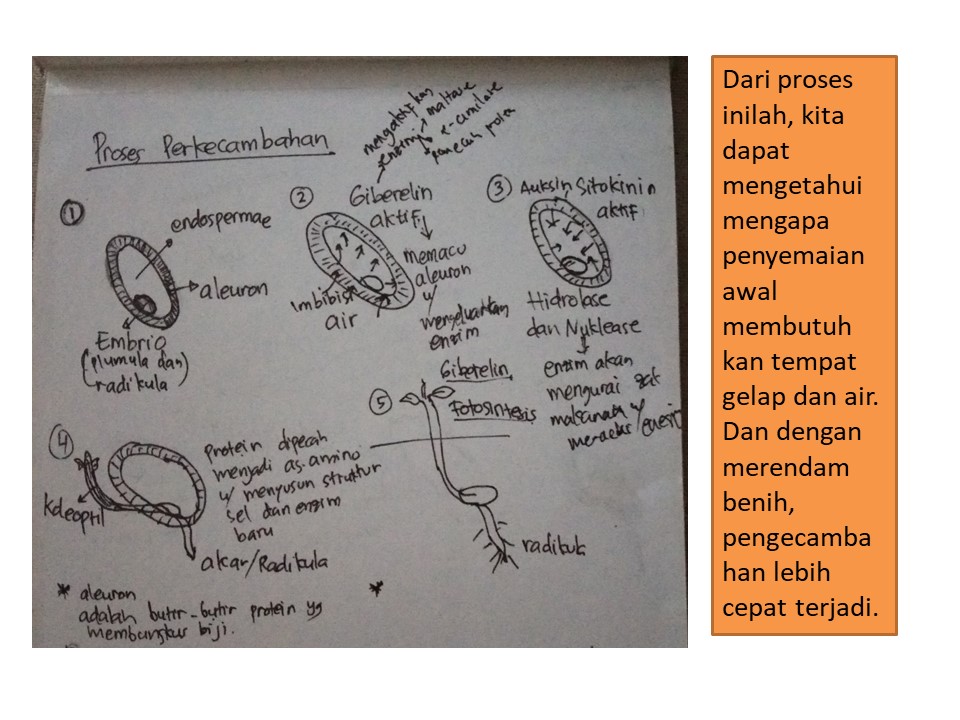 Proses Perkecambahan
1
endospermae
aleuron
Embrio
(plumula dan
radikula)
2
mengaktifkan
enzim
maltase
pemecah
Giberelin
aktif
memacu
aleuron
u/
mengeluarkan
enzim
Imbibisi
air
3 Auksin Sitokinin
aktif
Hidrolase
dan Nuklease
enzim akan
mengurai zat
makanan u/
4
Koleoptil
protein dipecah
menjadi as.amino
u/ menyusun struktur
sel dan enzim
baru
akar/Radikula
5
Giberelin
Fotosintesis
radikula
* aleuron
adalah butir-butir protein yg
membungkus biji.
*
Dari proses
inilah, kita
dapat
mengetahui
mengapa
penyemaian
awal
membutuh
kan tempat
gelap dan air.
Dan dengan
merendam
benih,
pengecamba
han lebih
cepat terjadi.